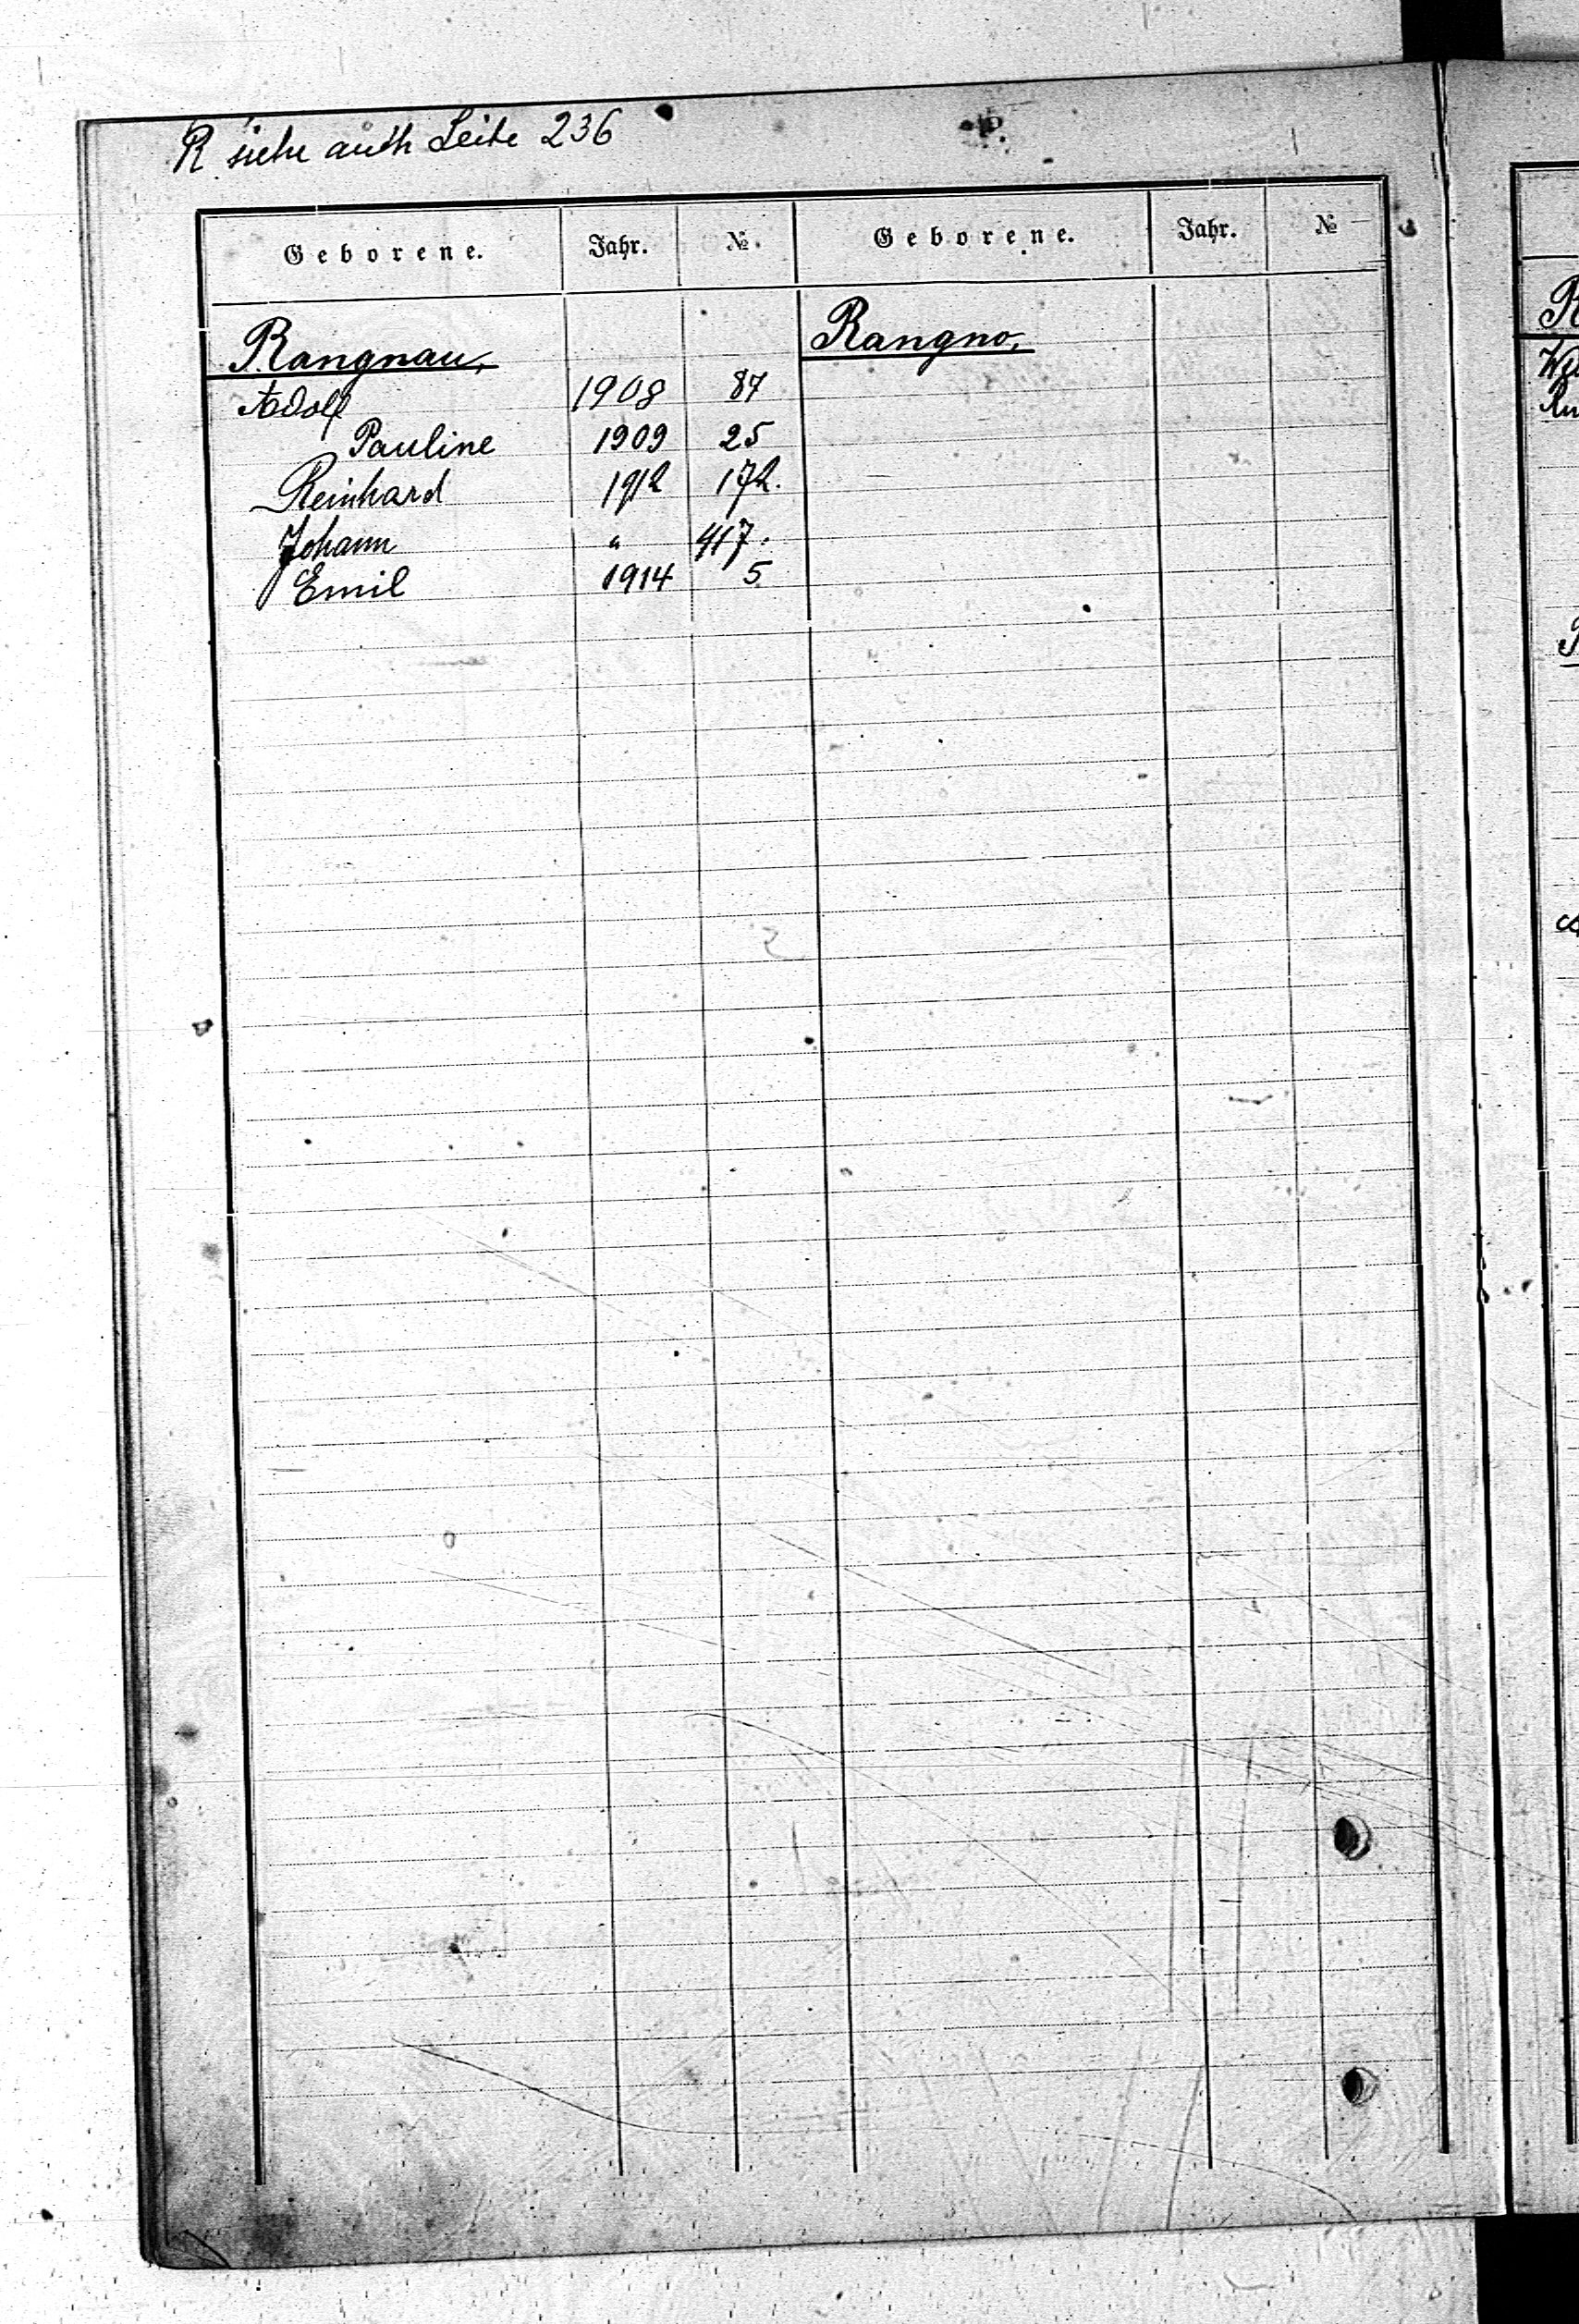 R siehe auch Seite 236
Geborene. Jahr. № Geborene. Jahr. №
Rangnau, Rangno,
Adolf 1908 87
Pauline 1909 25
Reinhard 1912 172.
Johann " 417.
Emil 1914 5